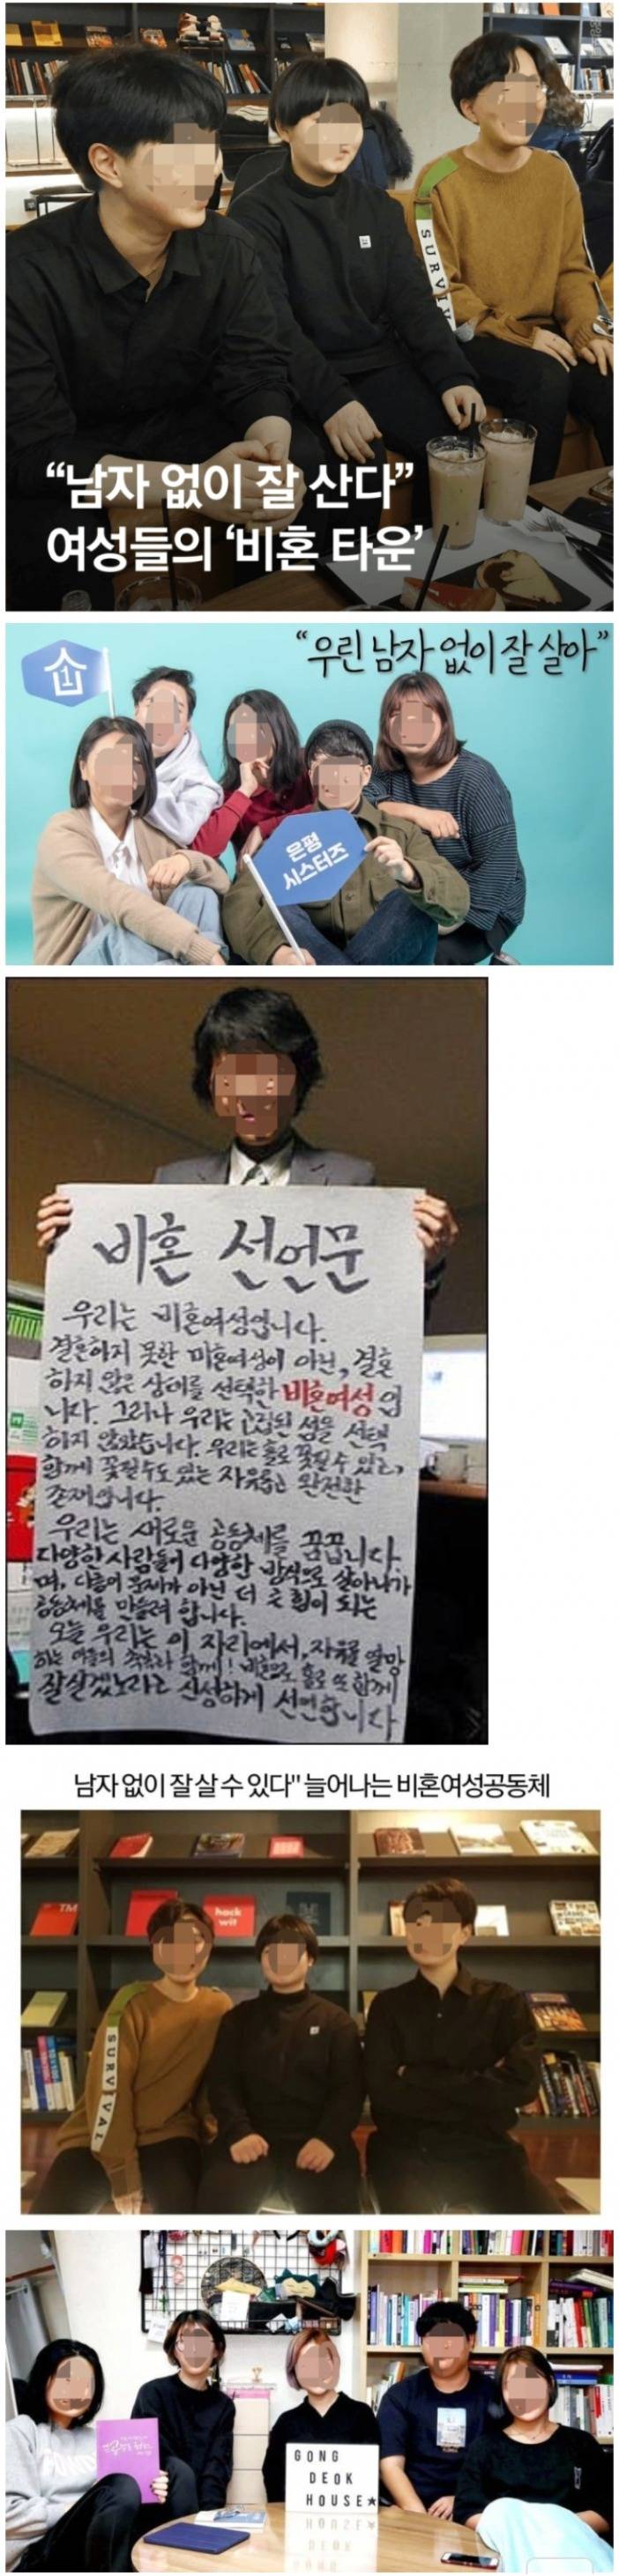 SURVIV
“남자 없이 잘 산다”
여성들의 ‘비혼 타운’
“우린 남자 없이 잘 살아”
1
은평
시스터즈
비혼 선언문
우리는 비혼여성입니다.
결혼하지 못한 미혼여성이 아닌, 결혼
하지 않은 상태를 선택한 비혼여성입
니다. 그러나 우리는 고립된 섬을 선택
하지 않았습니다. 우리는 홀로 꽃필 수 있고,
함께 꽃필 수도 있는 자유롭고 완전한
존재입니다.
우리는 새로운 공동체를 꿈꿉니다.
다양한 사람들이 다양한 방식으로 살아나가
며, 다름이 문제가 아닌 더 큰 힘이 되는
공동체를 만들려 합니다.
오늘 우리는 이 자리에서, 자유를 열망
하는 이들의 축복과 함께! 비혼으로 홀로 또 함께
잘살겠노라고 신성하게 선언합니다
남자 없이 잘 살 수 있다" 늘어나는 비혼여성공동체
TM
hack
wit
SURVIVAL
GONG
DEOK
HOUSE★